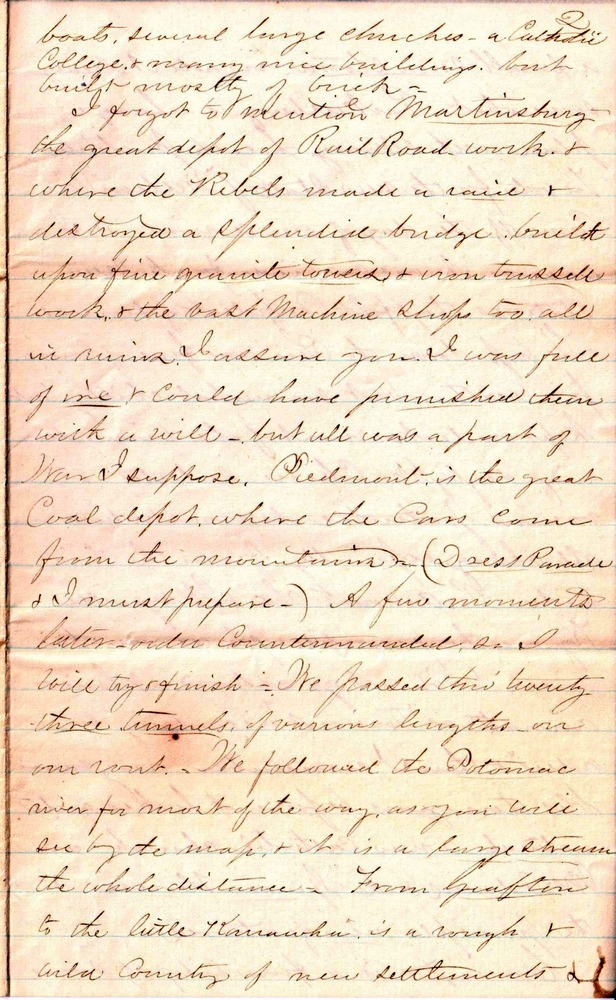 2
boats, several large churches - a Catholic
College, & many nice buildings. but
built mostly of brick -
I forgot to mention Martinsburg
the great depot of Rail Road work. &
where the Rebels made a raid &
destroyed a splendid bridge. built
upon fine granite towers, & iron trussell
work, & the vast Machine Shops too all
in ruins. I assure you. I was full
of ire, & could have punished them
with a will - but all was a part of
War I suppose. Piedmont, is the great
Coal depot, where the Cars come
from the mountains - (Dress Parade
& I must prepare -) A few moments
later - order Countermanded, so I
will try & finish - We passed thro' twenty
three tunnels, of various lengths on
our rout. - We followed the Potomac
river for most of the way, as you will
see by the map, & it is a large stream
the whole distance - From Grafton
to the little Kanawha is a rough &
wild Country of new settlements &